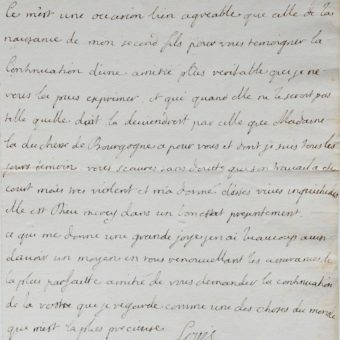 ce m'est une occasion bien agreable que celle de la
naissance de mon second fils pour vous temoigner la
continuation d'une amitié plus veritable que je ne
vous les puis exprimer, et qui quand elle ne le seroit pas
telle qu'elle doit la deviendroit par celle que Madame
la duchesse de Bourgogne a pour vous et dont je suis tous les
jours temoin vous scaures sans doutte que son travail a ete
court mais tres violent et m'a donné d'asses vives inquietudes
elle est Dieu mercy dans un bon estat presentement
ce qui me donne une grande joye j'en ai beaucoup aussi
d'avoir un moyen en vous renouvellant les assurances de
la plus parfaitte amitié de vous demander la continuation
de la vostre que je regarde comme une des choses du monde
qui m'est la plus precieuse Louis